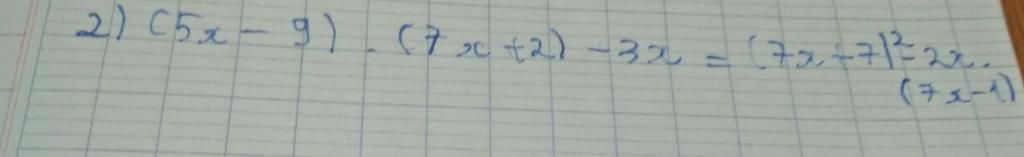 2) (5x - 9) . (7x + 2) - 3x = (7x + 7)² - 2x.
(7x - 1)